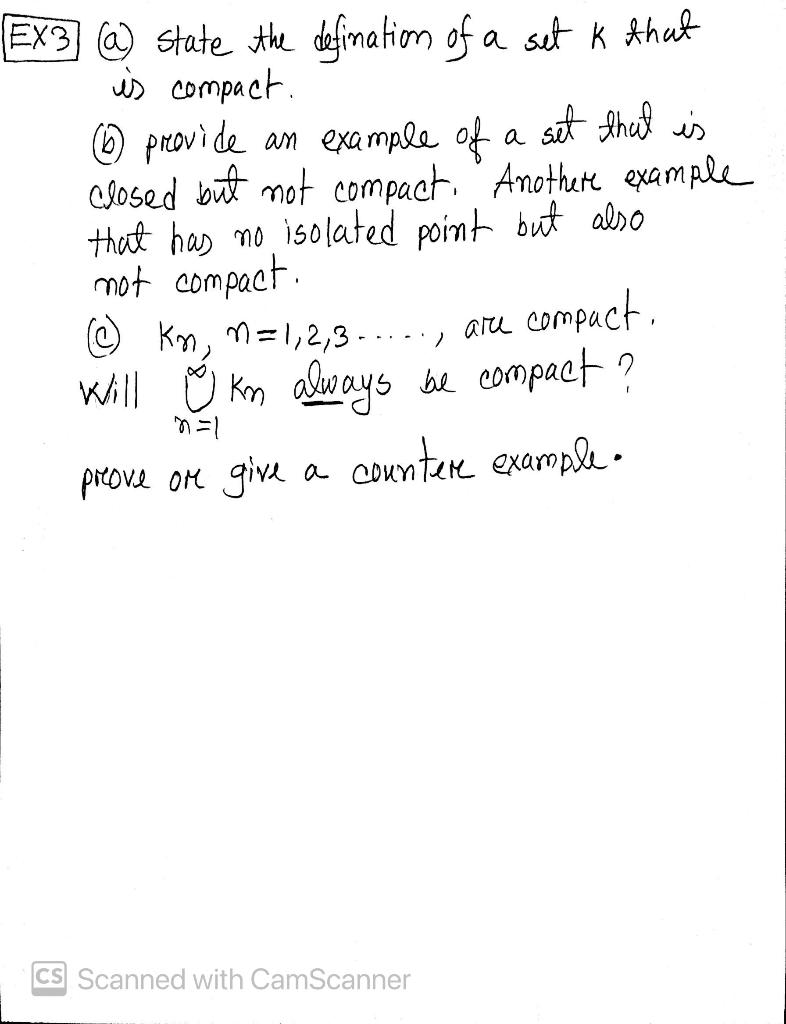 EX3 (a) state the defination of a set K that
is compact.
(b) provide an example of a set that is
closed but not compact. Another example
that has no isolated point but also
not compact.
(c) Kn, n=1,2,3....., are compact.
Will ∞∪n=1 Kn always be compact?
prove or give a counter example.
CS Scanned with CamScanner